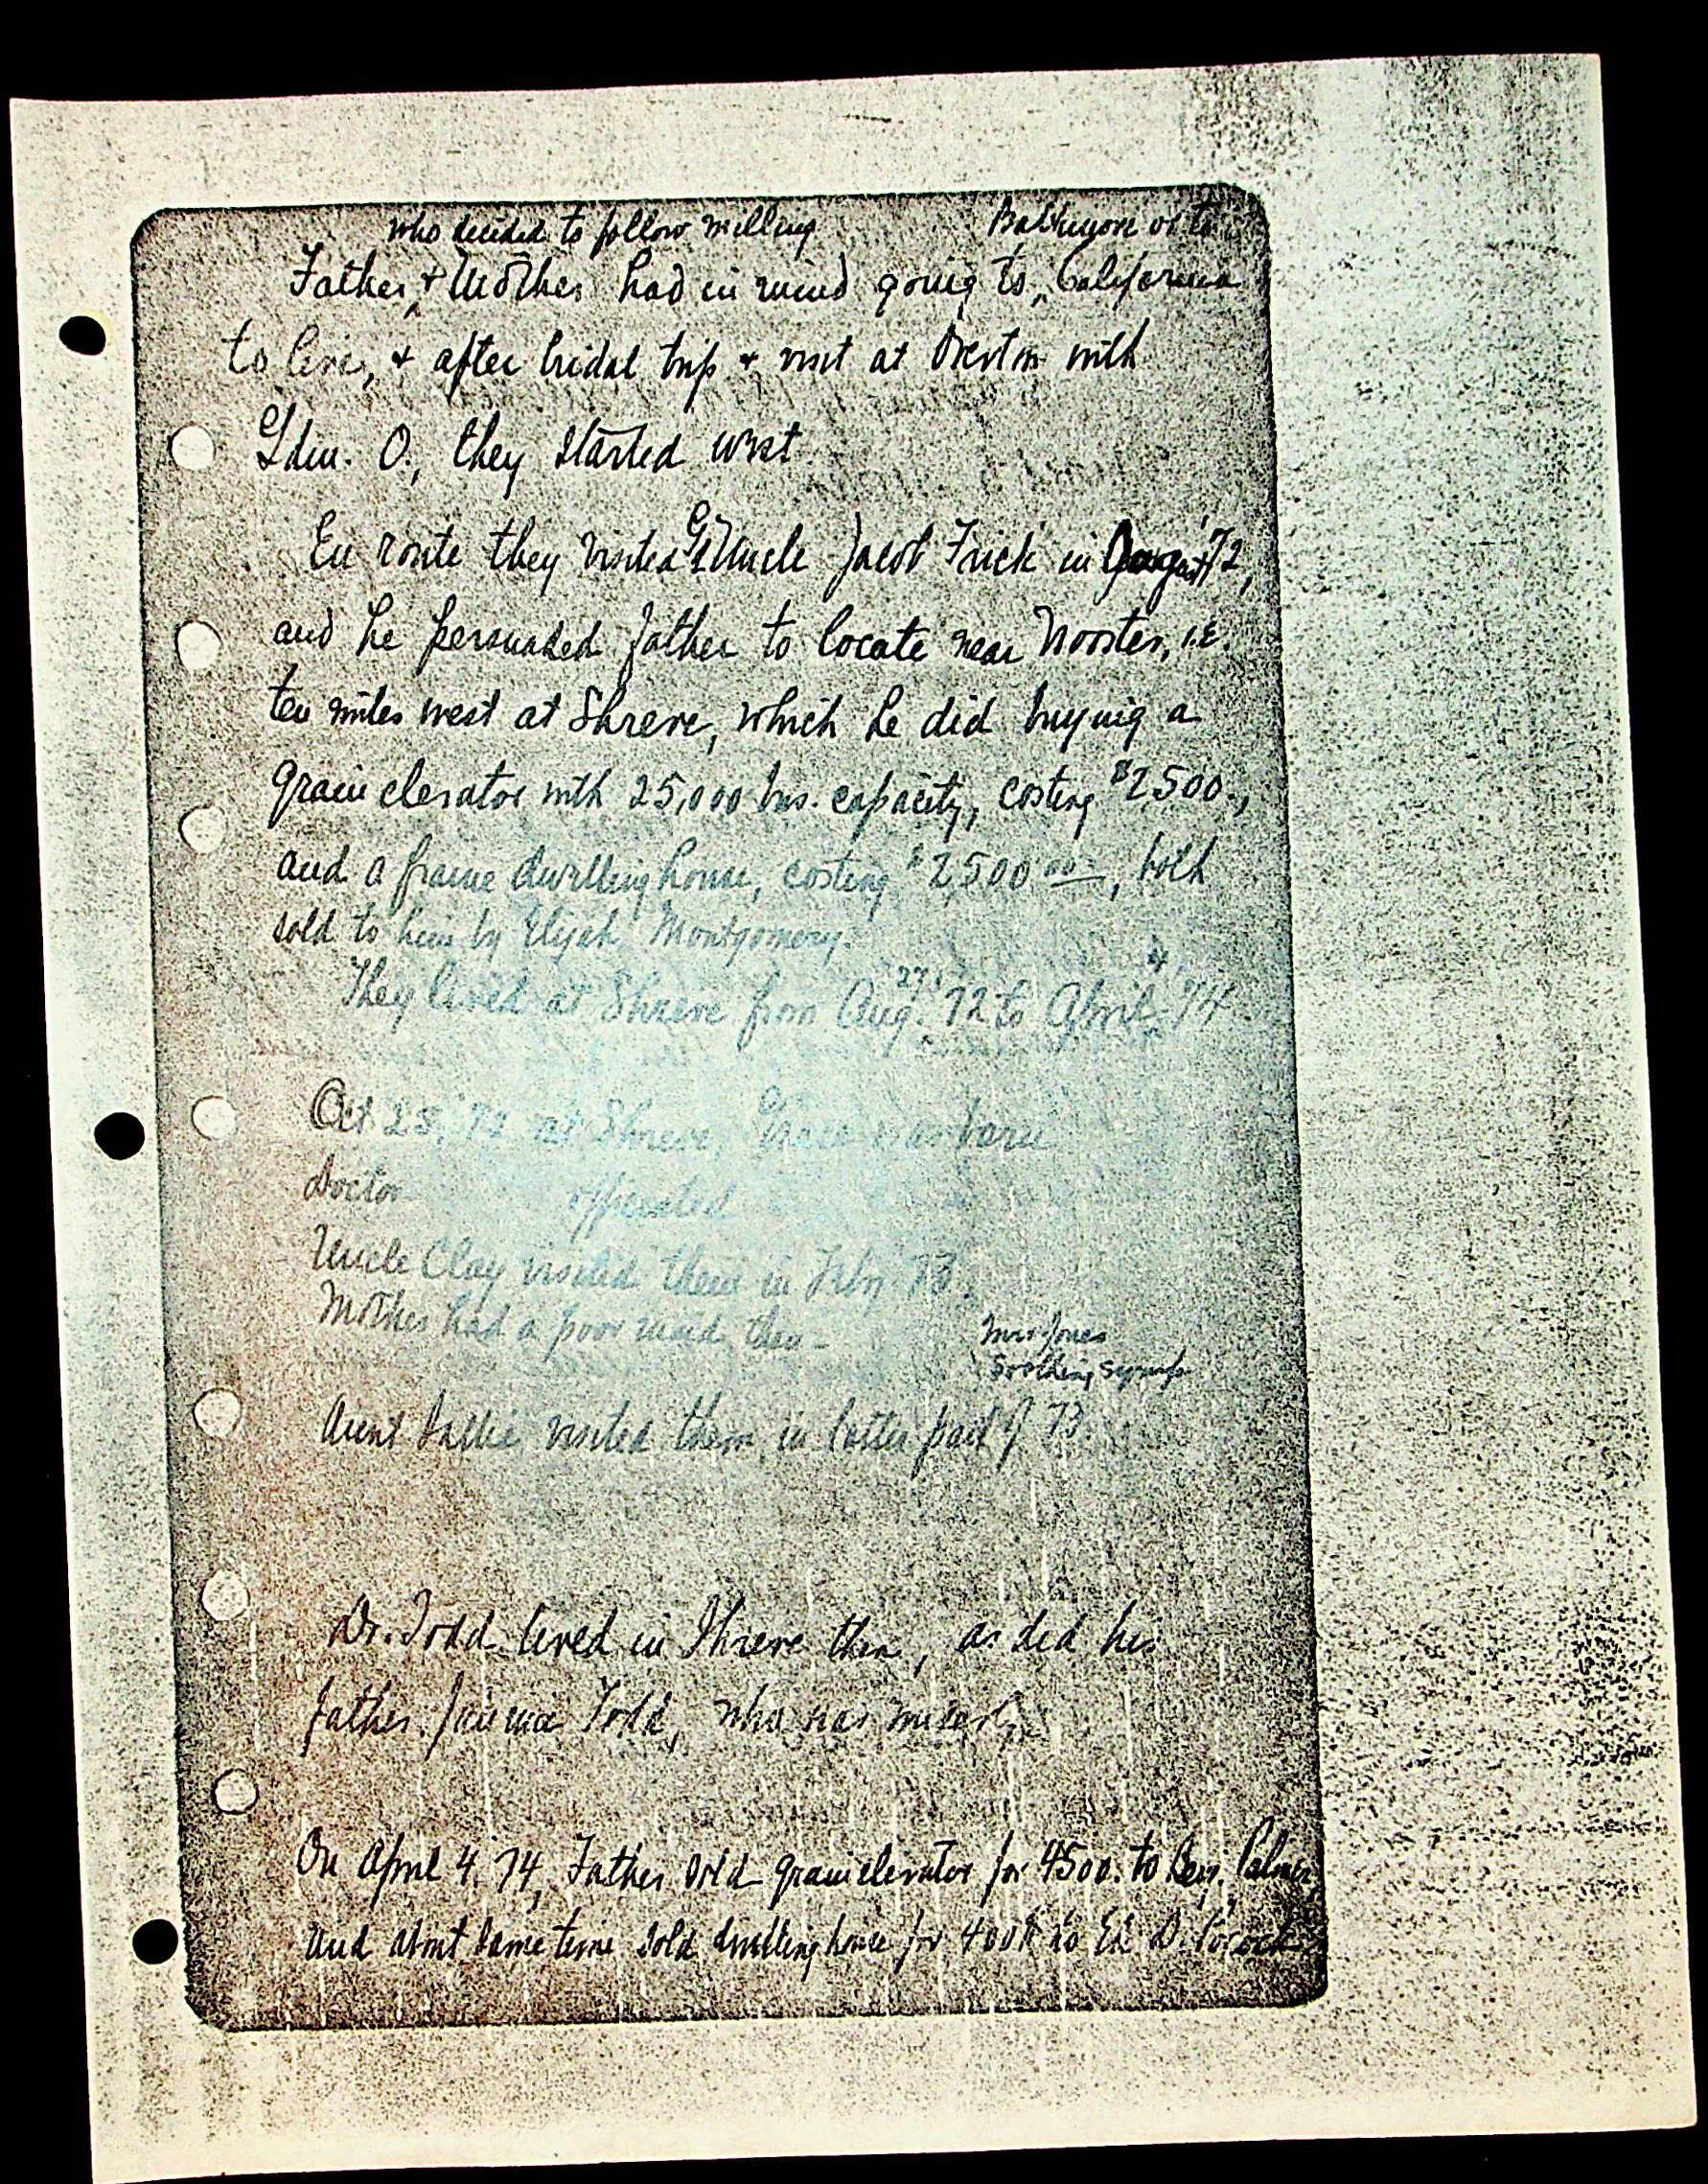 who decided to follow milling Baltimore or to
Father, & Mother had in mind going to California
to live, & after bridal trip & visit at with
O., they started west.
En route they visited Uncle Jacob Frick in August '72,
and he persuaded father to locate near Wooster, i.e.
ten miles west at Shreve, which he did buying a
grain elevator with 25,000 bus. capacity, costing $2500.,
and a frame dwelling house, costing $2,500 00, both
sold to him by Elijah Montgomery.
They lived at Shreve from Aug. 27, '72 to April 4, '74
Oct 25, '72 at Shreve, Grace was born
Doctor operated
Uncle Clay visited them in Feby '73.
Mother had a poor maid then -
Mrs Jones
Soothing syrup
Aunt Sallie visited them in latter part of 73.
Dr. Todd lived in Shreve then, as did his
father. Todd, who was
On April 4, 74, Father sold grain elevator for 4500. to Benj. Palmer,
and about same time sold dwelling house for to D. Pocock